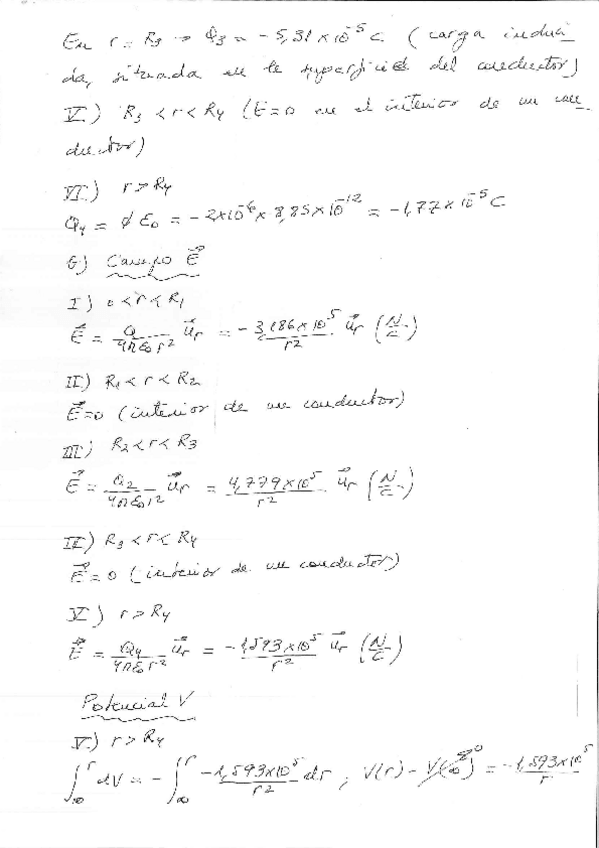 En r = R3 → Q3 = -5,31×10^-5 C (carga induci-
da, situada en la superficie del conductor)
V.) R3 < r < R4 (E=0 en el interior de un con-
ductor)
VI.) r > R4
Q4 = ϕ ε0 = -2×10^6 × 8,85×10^-12 = -1,77×10^-5 C
b) Campo E⃗
I) 0 < r < R1
E⃗ = Q/(4πε0 r^2) u⃗r = -3,186×10^5/r^2 u⃗r (N/C)
II) R1 < r < R2
E⃗=0 (interior de un conductor)
III) R2 < r < R3
E⃗ = Q2/(4πε0 r^2) u⃗r = 4,779×10^5/r^2 u⃗r (N/C)
IV) R3 < r < R4
E⃗ = 0 (interior de un conductor)
V) r > R4
E⃗ = Q4/(4πε0 r^2) u⃗r = -1,593×10^5/r^2 u⃗r (N/C)
Potencial V
V.) r > R4
∫_∞^r dV = -∫_∞^r -1,593×10^5/r^2 dr ; V(r) - V(∞) = -1,593×10^5/r